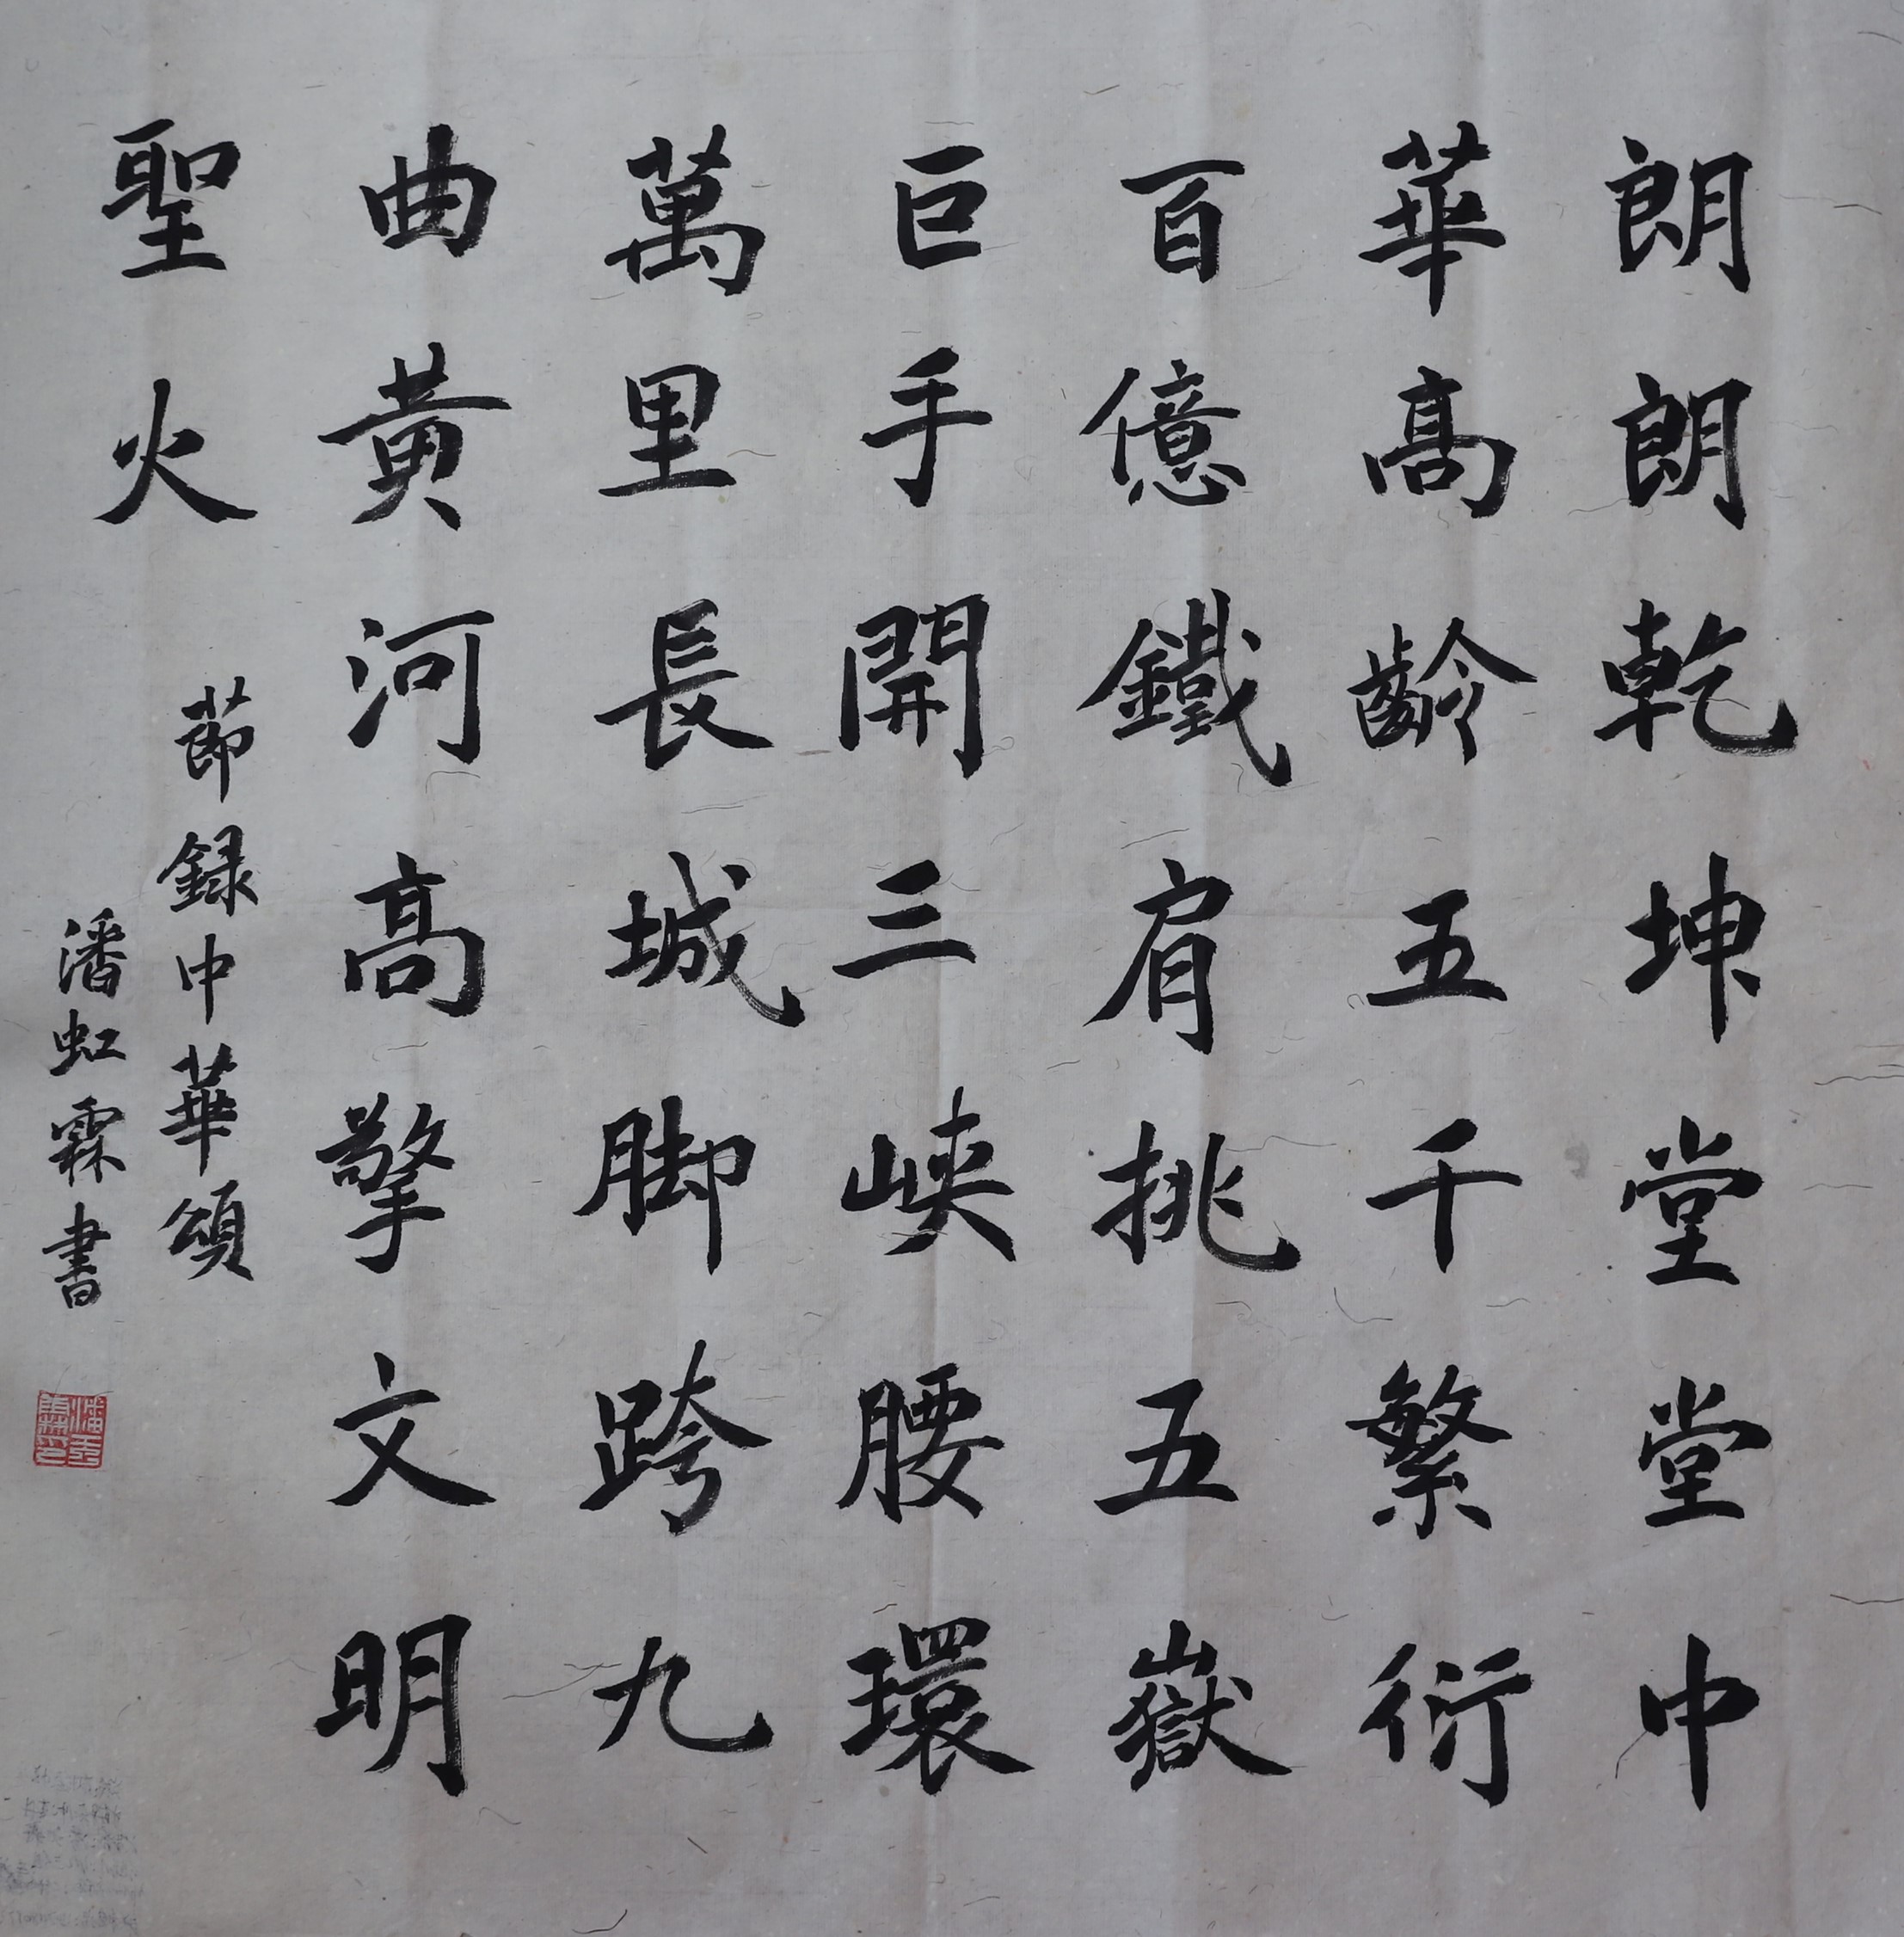 朗朗乾坤堂堂中
華高齡五千繁衍
百億鐵肩挑五嶽
巨手開三峽腰環
萬里長城脚跨九
曲黃河高擎文明
聖火
節録中華頌
潘虹霖書